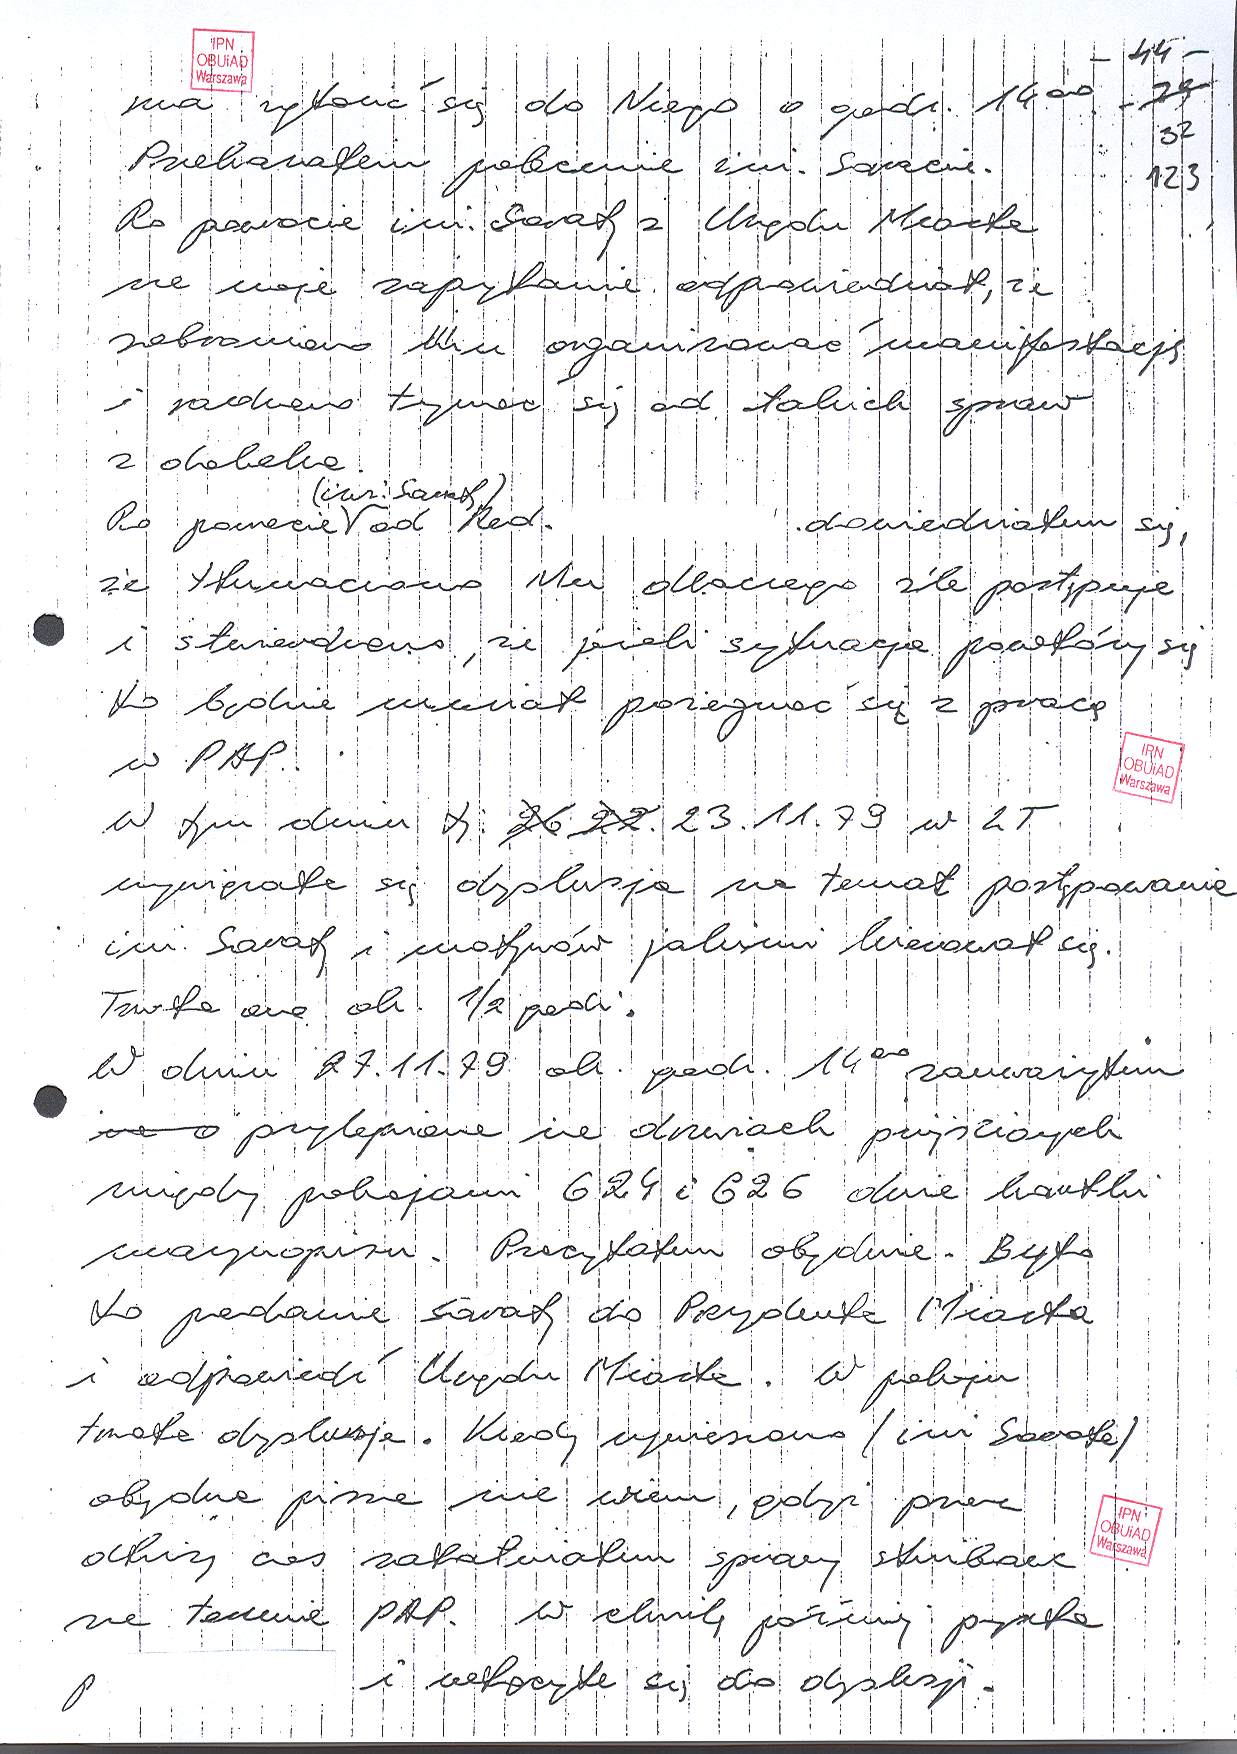 IPN
OBUiAD
Warszawa
- 44 -
- 29
32
123
ma zgłosić się do Niego o godz. 14⁰⁰
Przekazałem polecenie inż. Sawacie.
Po powrocie inż. Sawaty z Urzędu Miasta
na moje zapytanie odpowiedział, że
zabroniono Mu organizować manifestację
i radzono trzymać się od takich spraw
z daleka.
(inż. Sawaty)
Po powrocie od Red. dowiedziałem się,
że tłumaczono Mu dlaczego źle postępuje
i stwierdzono, że jeżeli sytuacja powtórzy się
to będzie musiał pożegnać się z pracą
w PAP.
W tym dniu tj. 26 22. 23.11.79 w LT
wywiązała się dyskusja na temat postępowania
inż. Sawaty i motywów jakimi kierował się.
Trwała ona ok. 1/2 godz.
W dniu 27.11.79 ok. godz. 14⁰⁰ zauważyłem
na o przylepione na drzwiach przejściowych
między pokojami 624 i 626 dwie kartki
maszynopisu. Przeczytałem obydwie. Było
to podanie Sawaty do Prezydenta Miasta
i odpowiedź Urzędu Miasta. W pokoju
trwała dyskusja. Kiedy wywieszono (inż Sawata)
obydwa pisma nie wiem, gdyż przez
dłuższy czas załatwiałem sprawy służbowe
na terenie PAP. W chwilę później przyszła
P i włączyła się do dyskusji.
IPN
OBUiAD
Warszawa
IPN
OBUiAD
Warszawa